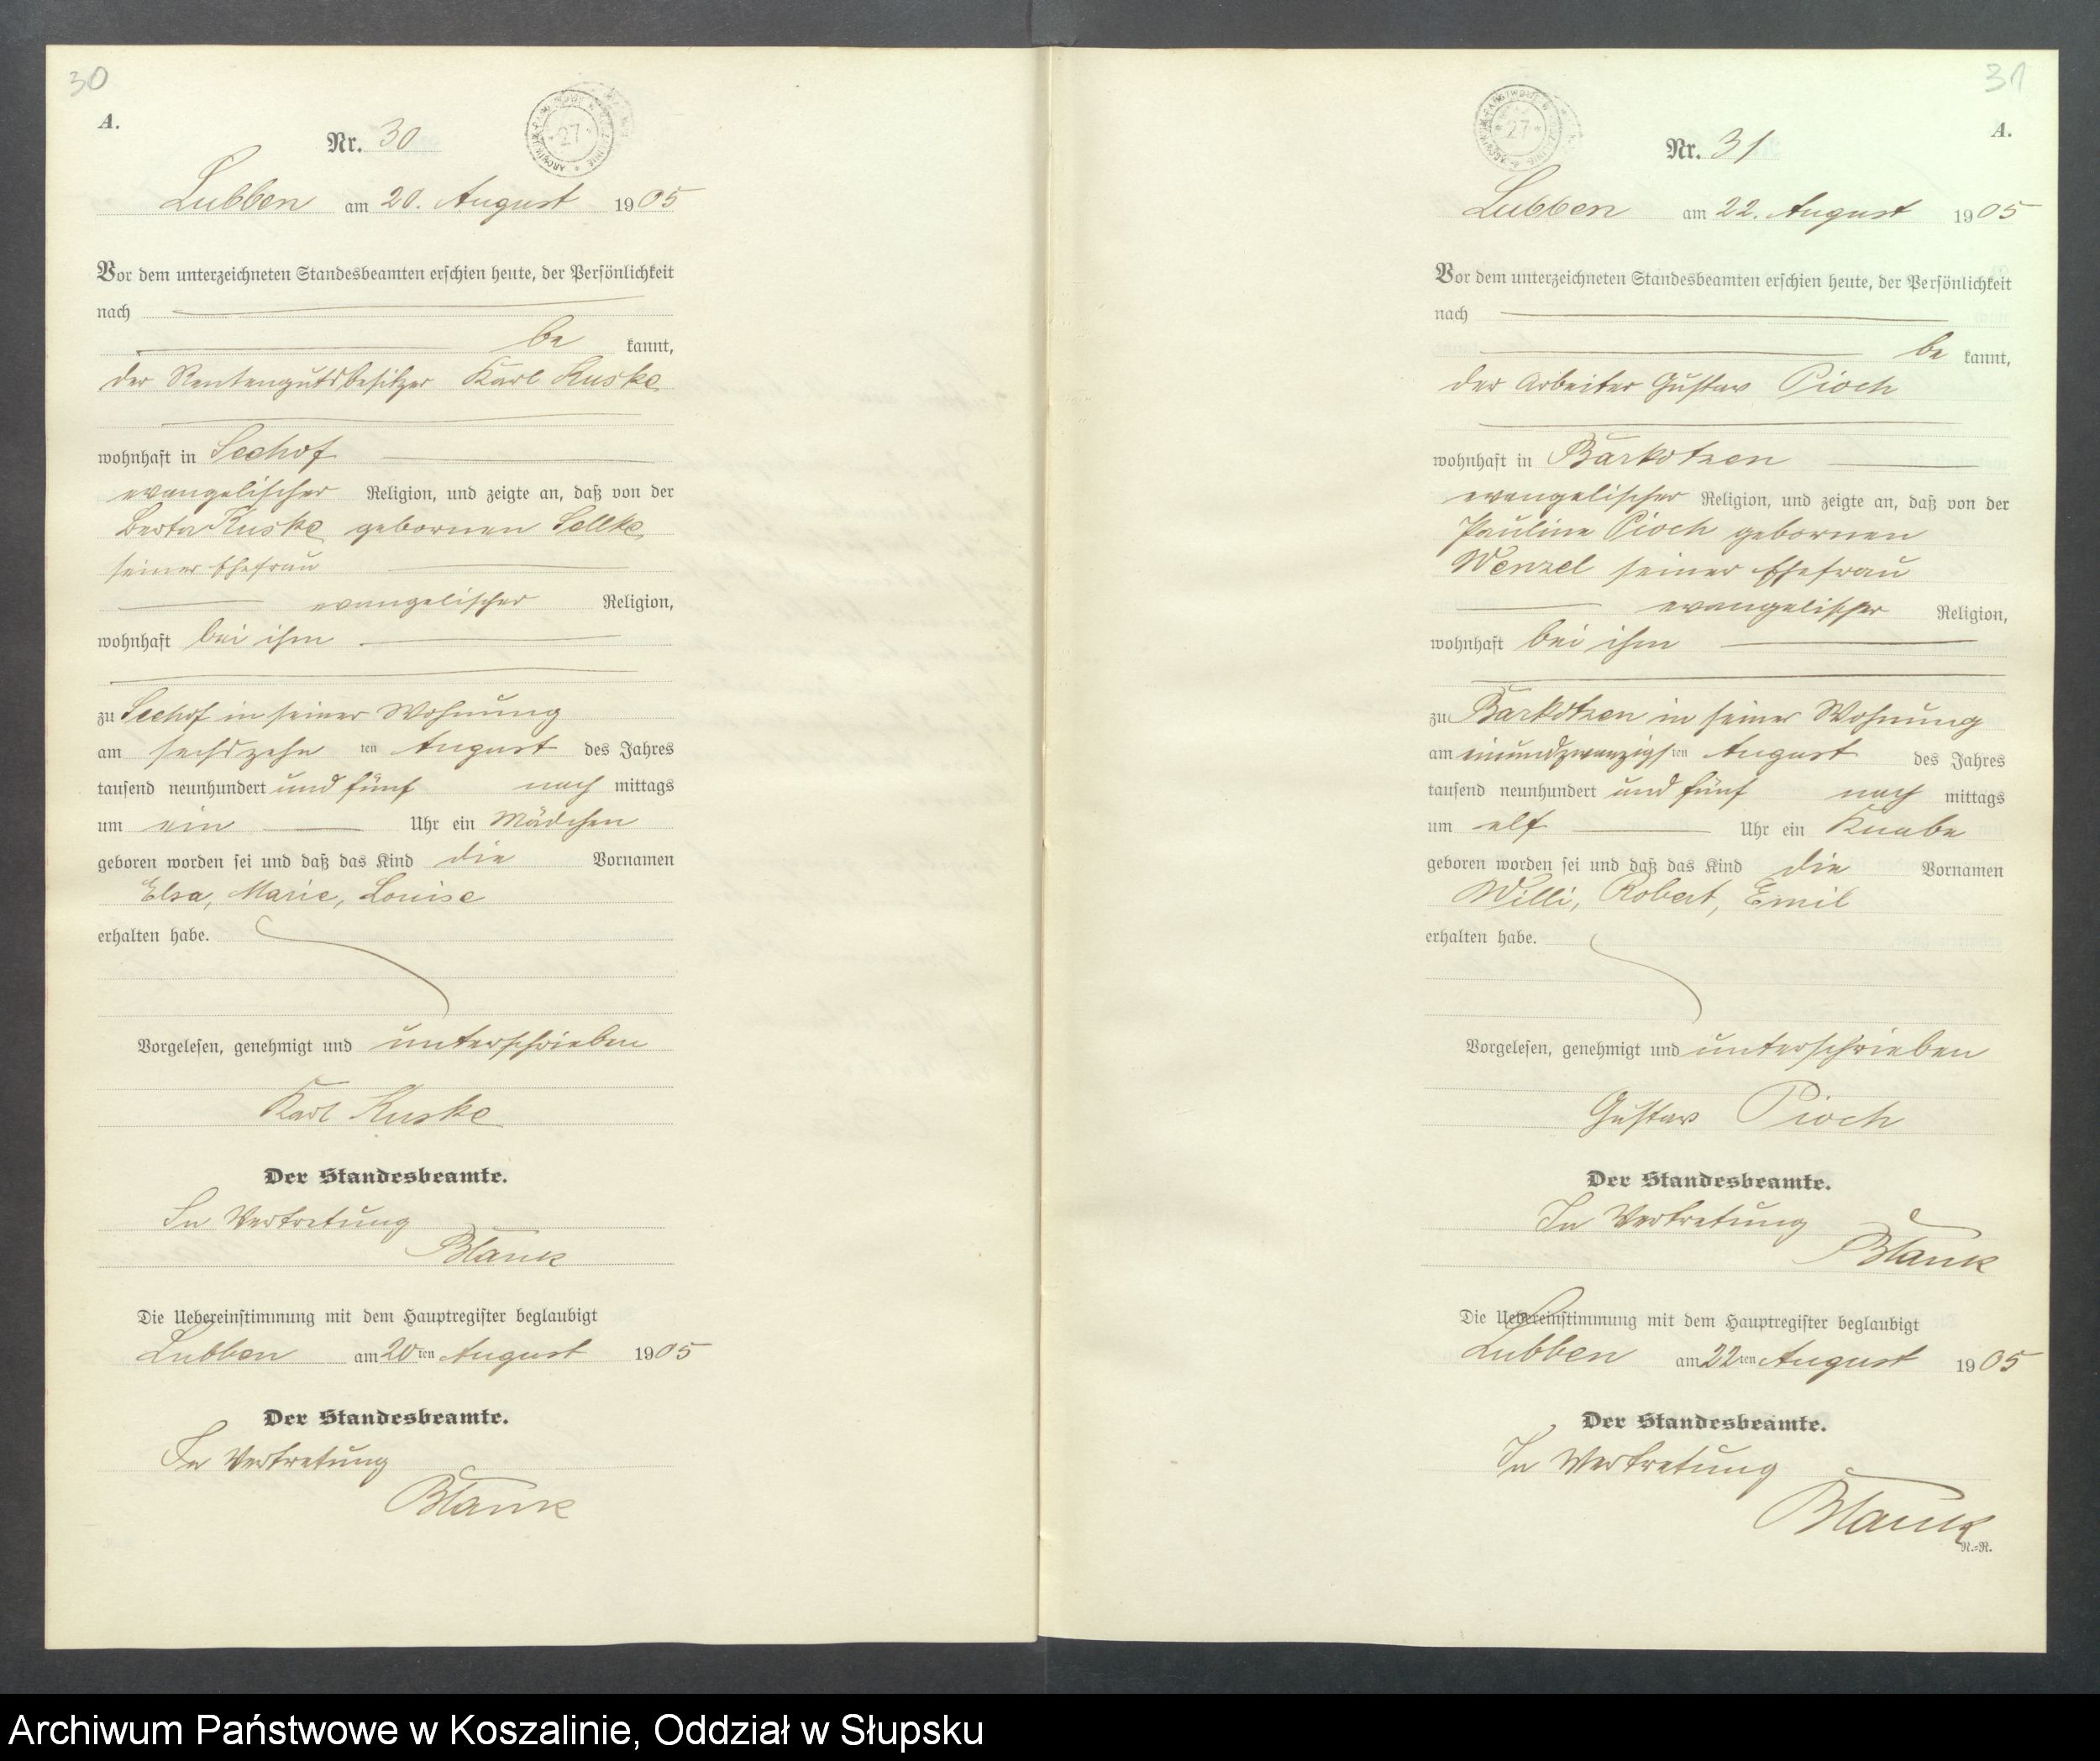 30
A.
Nr. 30
27
Lubben am 20. August 1905
Vor dem unterzeichneten Standesbeamten erschien heute, der Persönlichkeit
nach
be kannt,
der Rentengutsbesitzer Karl Kuske
wohnhaft in Seehof
evangelischer Religion, und zeigte an, daß von der
Berta Kuske gebornen Sellke
seiner Ehefrau
evangelischer Religion,
wohnhaft bei ihm
zu Seehof in seiner Wohnung
am sechszehn ten August des Jahres
tausend neunhundert und fünf nach mittags
um ein Uhr ein Mädchen
geboren worden sei und daß das Kind die Vornamen
Elsa, Marie, Louise
erhalten habe.
Vorgelesen, genehmigt und unterschrieben
Karl Kuske
Der Standesbeamte.
In Vertretung
Blank
Die Uebereinstimmung mit dem Hauptregister beglaubigt
Lubben am 20ten August 1905
Der Standesbeamte.
In Vertretung
Blank
31
A.
Nr. 31
27
Lubben am 22. August 1905
Vor dem unterzeichneten Standesbeamten erschien heute, der Persönlichkeit
nach
be kannt,
der Arbeiter Gustav Pioch
wohnhaft in Barkotzen
evangelischer Religion, und zeigte an, daß von der
Pauline Pioch gebornen
Wenzel seiner Ehefrau
evangelischer Religion,
wohnhaft bei ihm
zu Barkotzen in seiner Wohnung
am einundzwanzigsten August des Jahres
tausend neunhundert und fünf nach mittags
um elf Uhr ein Knabe
geboren worden sei und daß das Kind die Vornamen
Willi, Robert, Emil
erhalten habe.
Vorgelesen, genehmigt und unterschrieben
Gustav Pioch
Der Standesbeamte.
In Vertretung
Blank
Die Uebereinstimmung mit dem Hauptregister beglaubigt
Lubben am 22ten August 1905
Der Standesbeamte.
In Vertretung
Blank
R.=R.
Archiwum Państwowe w Koszalinie, Oddział w Słupsku